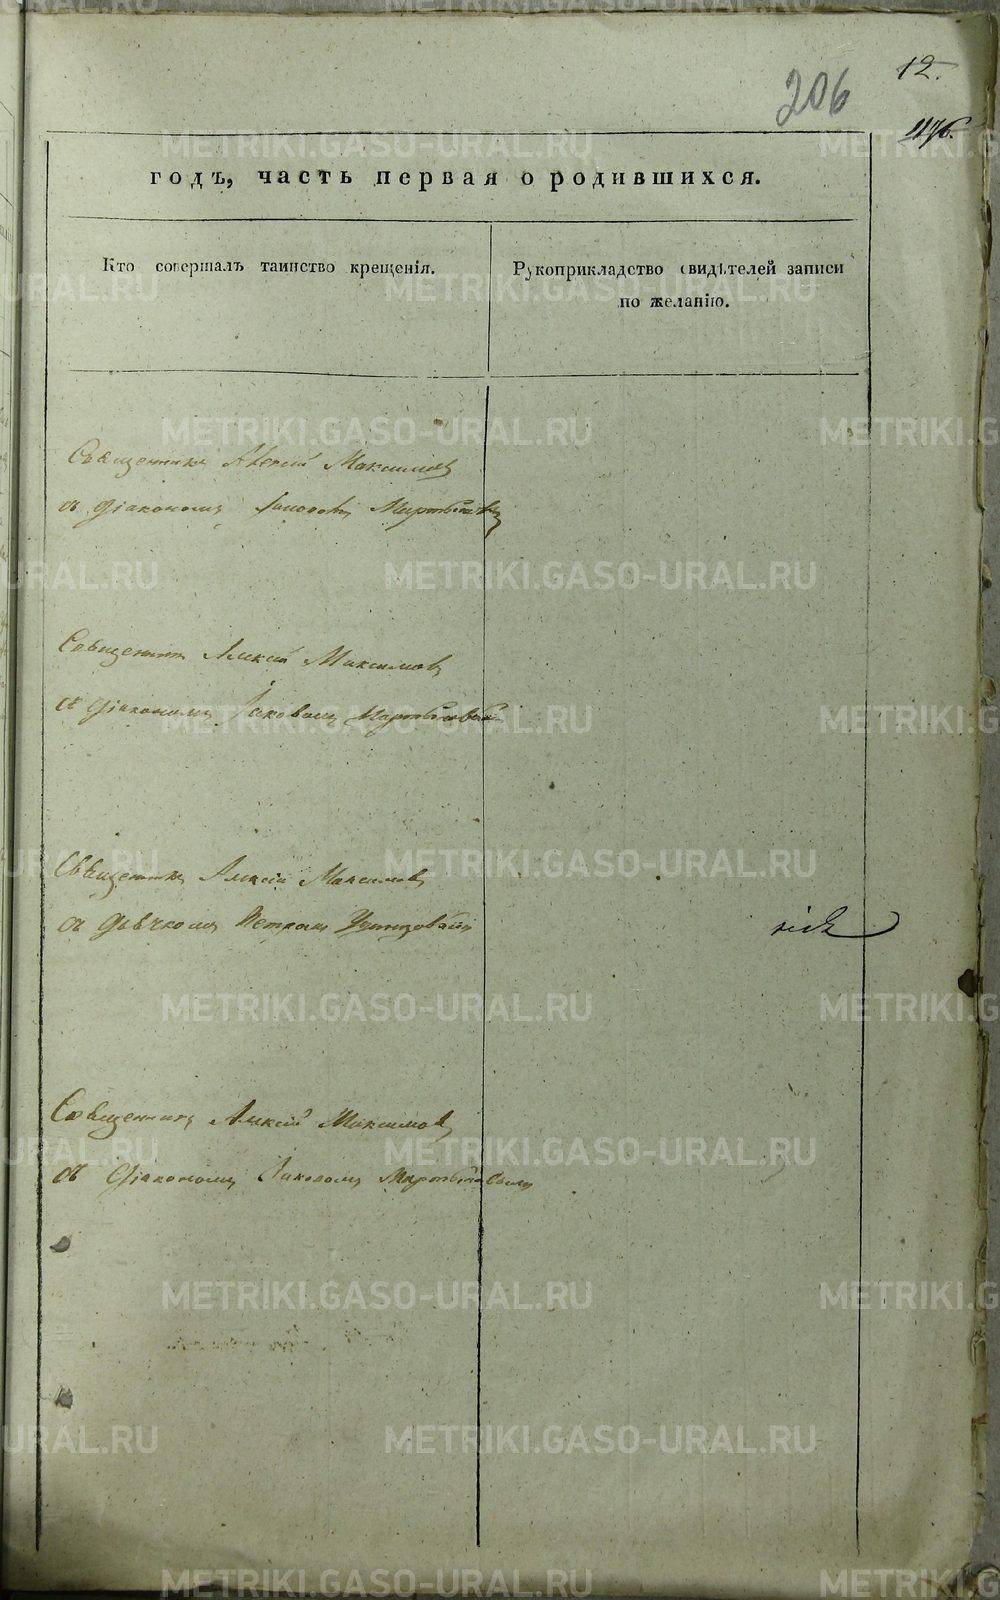 12.
206
годъ, часть первая о родившихся.
Кто совершалъ таинство крещенія.
Рукоприкладство свидѣтелей записи
по желанію.
Священникъ Алексій Максимовъ
съ Діакономъ Іаковомъ
Священникъ Алексій Максимовъ
съ Діакономъ Іаковомъ
Священникъ Алексій Максимовъ
съ Дьячкомъ Петромъ
Священникъ Алексій Максимовъ
съ Діакономъ Іаковомъ
METRIKI.GASO-URAL.RU